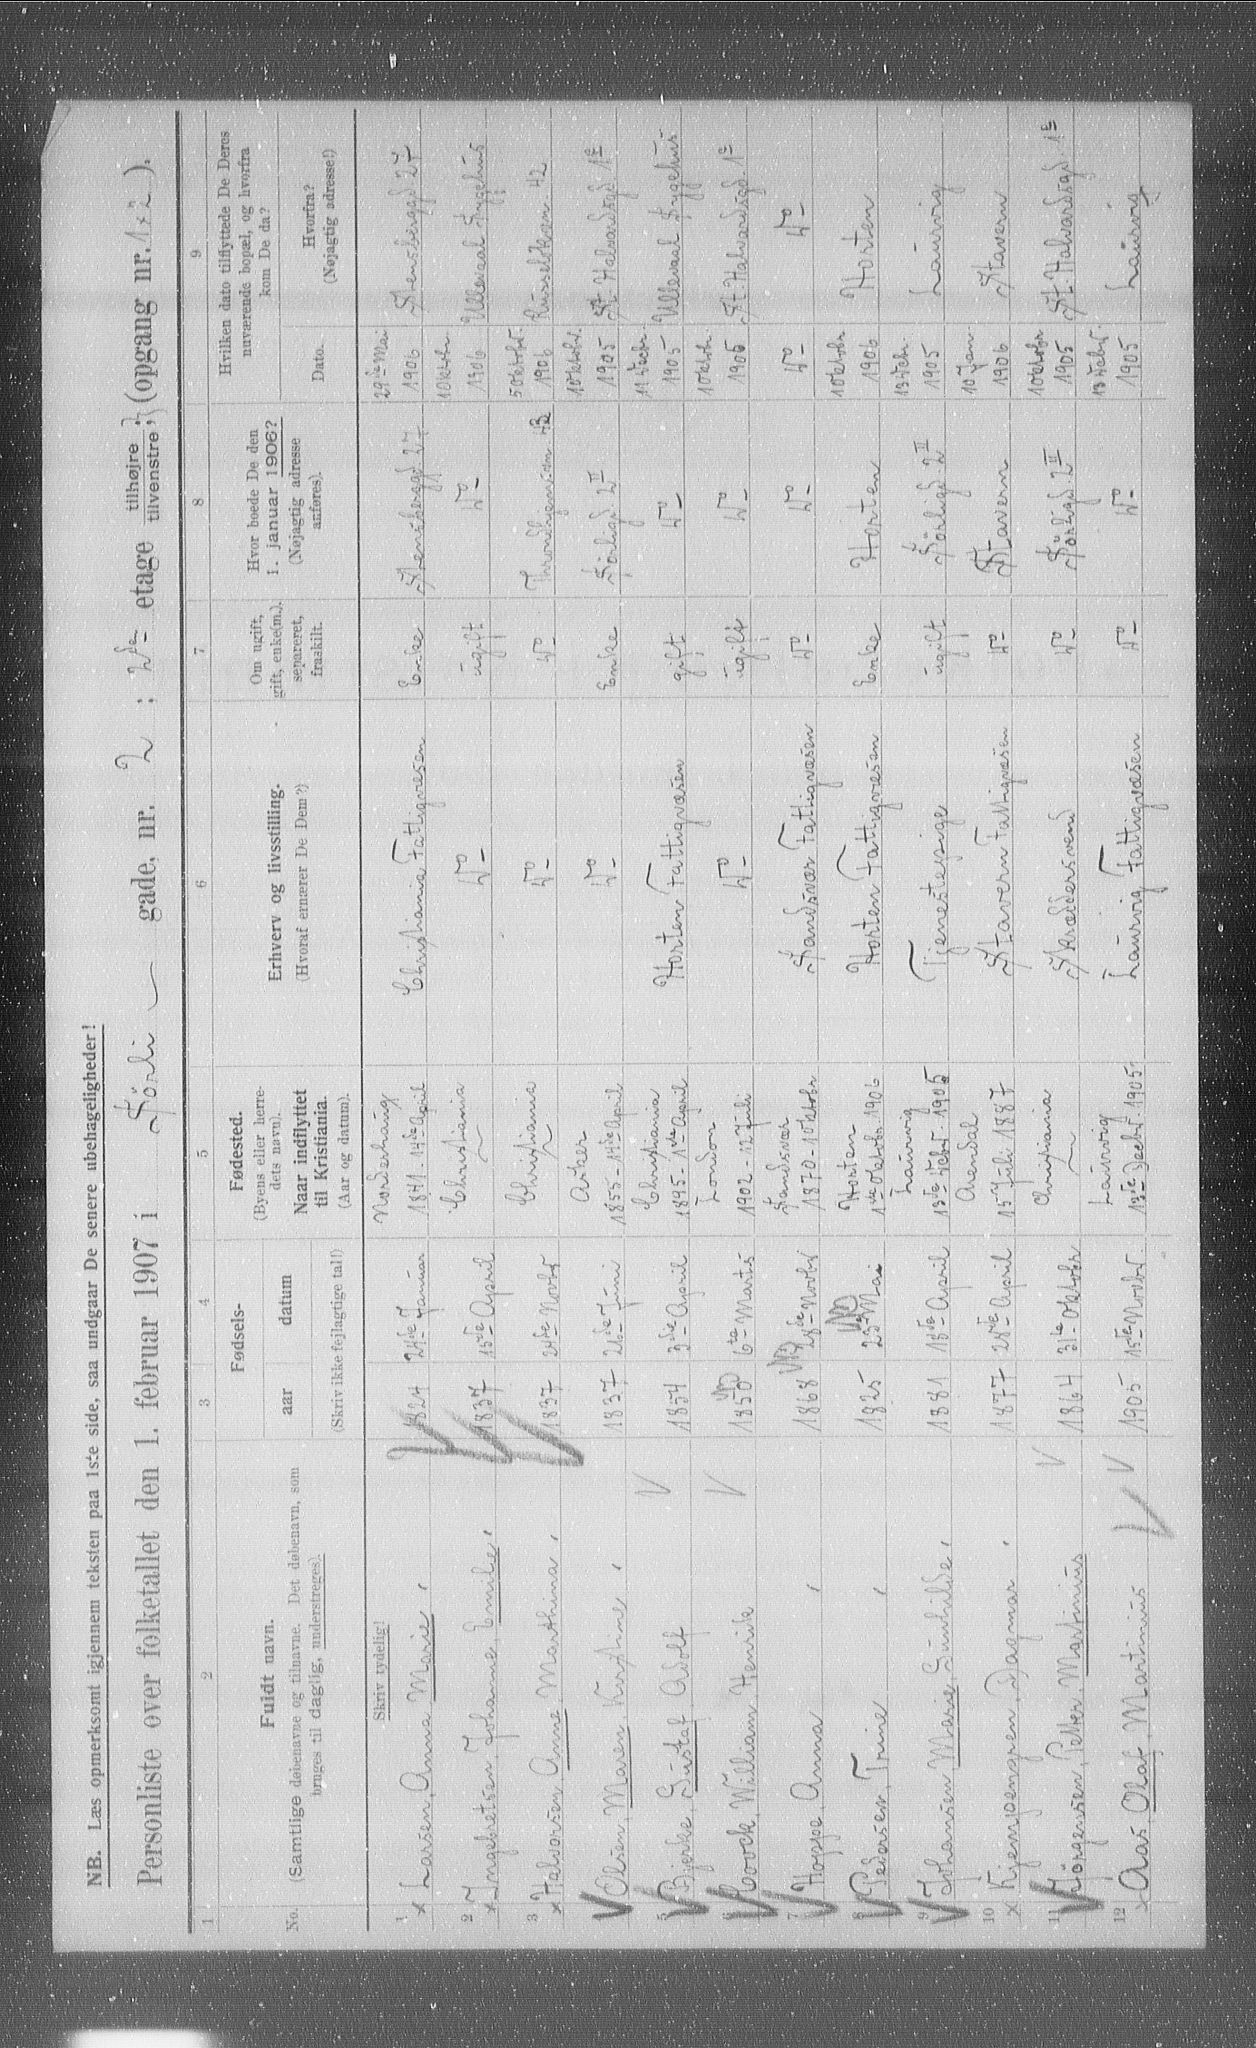 NB. Læs opmerksomt igjennem teksten paa 1ste side, saa undgaar De senere ubehageligheder!
Personliste over folketallet den 1. februar 1907 i Sörli gade, nr. 2 ; 2de etage tilhøjre, tilvenstre, (opgang nr. 1 & 2).
1 2 3 4 5 6 7 8 9
No. Fuldt navn. (Samtlige døbenavne og tilnavne. Det døbenavn, som bruges til daglig, understreges).
Fødsels- aar datum (Skriv ikke fejlagtige tal!)
Fødested. (Byens eller herredets navn). Naar indflyttet til Kristiania. (Aar og datum).
Erhverv og livsstilling. (Hvoraf ernærer De Dem?)
Om ugift, gift, enke(m.), separeret, fraskilt.
Hvor boede De den 1. januar 1906? (Nøjagtig adresse anføres).
Hvilken dato tilflyttede De Deres nuværende bopæl, og hvorfra kom De da?
Dato. Hvorfra? (Nøjagtig adresse!)
Skriv tydelig!
1 x Larsen, Anna Marie, 1824 24de Januar Norderhaug 1841 - 14de April Christiania Fattigvæsen Enke Stensberggd 27 29de Mai 1906 Stensberggd 27
2 x Ingebretsen, Johanne, Emilie, 1837 15de April Christiania Do ugift Do 1 Oktobr. 1906 Ullevaal Sygehus
3 x Halvorsen, Anne, Marthina, 1837 24de Novbr Christiania Do Do Throndhjemsvn 42 5 Oktobr. 1906 Russeløkvn. 42
Olsen, Maren, Kirstine, 1837 26de Juni Asker 1855 - 14de April Do Enke Sörligd. 2 II 1 Oktobr. 1905 St. Halvardsgd. 1 E
5 Bjerke, Gustaf, Adolf 1854 3die April Christiania 1895 - 1ste April Horten Fattigvæsen gift Do 11 Decbr. 1905 Ullevaal Sygehus
6 Coock, William, Henrik 1850 6te Marts London 1902 - 12 Juli Do ugift Do 1 Oktobr. 1905 St. Halvardsgd. 1 E
7 Hoppe, Anna, 1868 28de Novbr Sandsvær 1870 - 1 Oktobr Sandsvær Fattigvæsen Do Do Do Do
8 Pedersen, Trine, 1825 23de Mai Horten 1ste Oktobr. 1906 Horten Fattigvæsen Enke Horten 1 Oktobr 1906 Horten
9 Johansen, Marie, Gunhilde, 1881 18de April Laurvig 13de Decbr. 1905 Tjenestepige ugift Sörligd. 2 II 13 Decbr. 1905 Laurvig
10 x Kjempenspen, Dagmar, 1877 28de April Arendal 15 Juli 1887 Stavern Fattigvæsen Do Stavern 10 Jan. 1906 Stavern
11 Jörgensen, Petter, Martinius 1864 31te Oktobr Christiania Skræddersvend Do Sörligd. 2 II 1 Oktobr 1905 St. Halvardsgd. 1 E
12 x Aas, Olaf, Martinius 1905 15de Novbr. Laurvig 13de Decbr 1905 Laurvig Fattigvæsen Do Do 13 Decbr. 1905 Laurvig